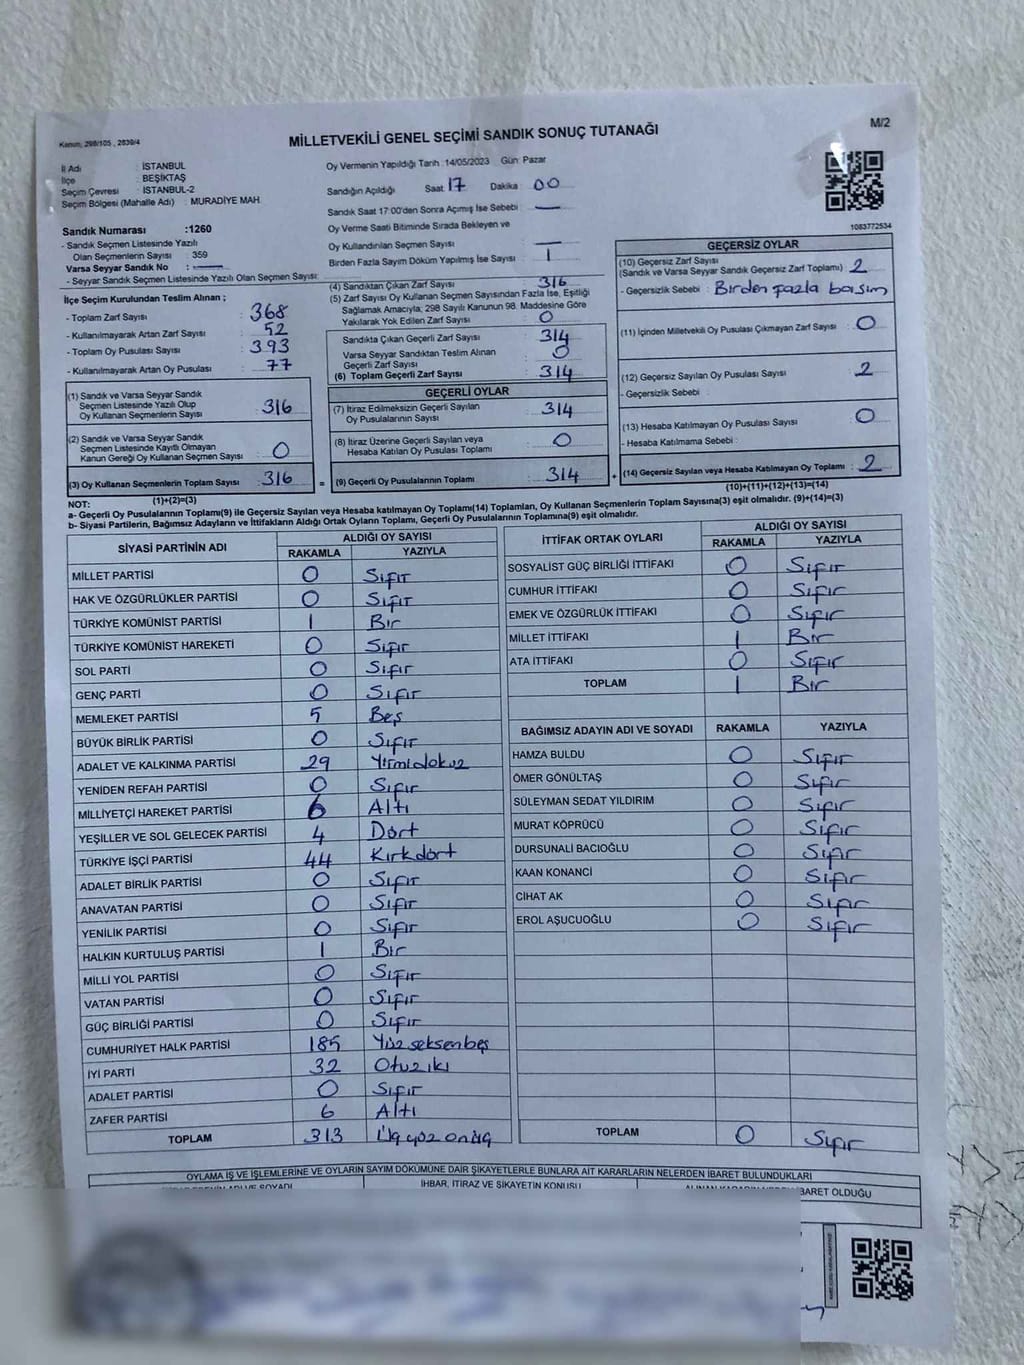 Kanun, 298/105 , 2839/4
MİLLETVEKİLİ GENEL SEÇİMİ SANDIK SONUÇ TUTANAĞI
M/2
İl Adı : İSTANBUL
İlçe : BEŞİKTAŞ
Seçim Çevresi : İSTANBUL-2
Seçim Bölgesi (Mahalle Adı) : MURADİYE MAH.
Oy Vermenin Yapıldığı Tarih :14/05/2023 Gün: Pazar
Sandığın Açıldığı Saat 17 Dakika 00
Sandık Saat 17:00'den Sonra Açımış İse Sebebi : —
Oy Verme Saati Bitiminde Sırada Bekleyen ve
Oy Kullandırılan Seçmen Sayısı : —
Birden Fazla Sayım Döküm Yapılmış İse Sayısı : 1
1083772534
Sandık Numarası :1260
- Sandık Seçmen Listesinde Yazılı
Olan Seçmenlerin Sayısı : 359
Varsa Seyyar Sandık No : —
- Seyyar Sandık Seçmen Listesinde Yazılı Olan Seçmen Sayısı:
İlçe Seçim Kurulundan Teslim Alınan ;
- Toplam Zarf Sayısı : 368
- Kullanılmayarak Artan Zarf Sayısı : 52
- Toplam Oy Pusulası Sayısı : 393
- Kullanılmayarak Artan Oy Pusulası : 77
(1) Sandık ve Varsa Seyyar Sandık
Seçmen Listesinde Yazılı Olup
Oy Kullanan Seçmenlerin Sayısı : 316
(2) Sandık ve Varsa Seyyar Sandık
Seçmen Listesinde Kayıtlı Olmayan
Kanun Gereği Oy Kullanan Seçmen Sayısı : 0
(3) Oy Kullanan Seçmenlerin Toplam Sayısı : 316 =
(1)+(2)=(3)
(4) Sandıktan Çıkan Zarf Sayısı : 316
(5) Zarf Sayısı Oy Kullanan Seçmen Sayısından Fazla İse, Eşitliği
Sağlamak Amacıyla, 298 Sayılı Kanunun 98. Maddesine Göre
Yakılarak Yok Edilen Zarf Sayısı : 0
Sandıkta Çıkan Geçerli Zarf Sayısı : 314
Varsa Seyyar Sandıktan Teslim Alınan
Geçerli Zarf Sayısı : 0
(6) Toplam Geçerli Zarf Sayısı : 314
GEÇERLİ OYLAR
(7) İtiraz Edilmeksizin Geçerli Sayılan
Oy Pusulalarının Sayısı : 314
(8) İtiraz Üzerine Geçerli Sayılan veya
Hesaba Katılan Oy Pusulası Toplamı : 0
(9) Geçerli Oy Pusulalarının Toplamı : 314 +
GEÇERSİZ OYLAR
(10) Geçersiz Zarf Sayısı
(Sandık ve Varsa Seyyar Sandık Geçersiz Zarf Toplamı) : 2
- Geçersizlik Sebebi : Birden fazla basım
(11) İçinden Milletvekili Oy Pusulası Çıkmayan Zarf Sayısı : 0
(12) Geçersiz Sayılan Oy Pusulası Sayısı : 2
- Geçersizlik Sebebi :
(13) Hesaba Katılmayan Oy Pusulası Sayısı : 0
- Hesaba Katılmama Sebebi :
(14) Geçersiz Sayılan veya Hesaba Katılmayan Oy Toplamı : 2
(10)+(11)+(12)+(13)=(14)
NOT:
a- Geçerli Oy Pusulalarının Toplamı(9) ile Geçersiz Sayılan veya Hesaba katılmayan Oy Toplamı(14) Toplamları, Oy Kullanan Seçmenlerin Toplam Sayısına(3) eşit olmalıdır. (9)+(14)=(3)
b- Siyasi Partilerin, Bağımsız Adayların ve İttifakların Aldığı Ortak Oyların Toplamı, Geçerli Oy Pusulalarının Toplamına(9) eşit olmalıdır.
SİYASİ PARTİNİN ADI ALDIĞI OY SAYISI
RAKAMLA YAZIYLA
MİLLET PARTİSİ 0 Sıfır
HAK VE ÖZGÜRLÜKLER PARTİSİ 0 Sıfır
TÜRKİYE KOMÜNİST PARTİSİ 1 Bir
TÜRKİYE KOMÜNİST HAREKETİ 0 Sıfır
SOL PARTİ 0 Sıfır
GENÇ PARTİ 0 Sıfır
MEMLEKET PARTİSİ 5 Beş
BÜYÜK BİRLİK PARTİSİ 0 Sıfır
ADALET VE KALKINMA PARTİSİ 29 Yirmidokuz
YENİDEN REFAH PARTİSİ 0 Sıfır
MİLLİYETÇİ HAREKET PARTİSİ 6 Altı
YEŞİLLER VE SOL GELECEK PARTİSİ 4 Dört
TÜRKİYE İŞÇİ PARTİSİ 44 Kırkdört
ADALET BİRLİK PARTİSİ 0 Sıfır
ANAVATAN PARTİSİ 0 Sıfır
YENİLİK PARTİSİ 0 Sıfır
HALKIN KURTULUŞ PARTİSİ 1 Bir
MİLLİ YOL PARTİSİ 0 Sıfır
VATAN PARTİSİ 0 Sıfır
GÜÇ BİRLİĞİ PARTİSİ 0 Sıfır
CUMHURİYET HALK PARTİSİ 185 Yüzseksenbeş
İYİ PARTİ 32 Otuziki
ADALET PARTİSİ 0 Sıfır
ZAFER PARTİSİ 6 Altı
TOPLAM 313 Üçyüzonüç
İTTİFAK ORTAK OYLARI ALDIĞI OY SAYISI
RAKAMLA YAZIYLA
SOSYALİST GÜÇ BİRLİĞİ İTTİFAKI 0 Sıfır
CUMHUR İTTİFAKI 0 Sıfır
EMEK VE ÖZGÜRLÜK İTTİFAKI 0 Sıfır
MİLLET İTTİFAKI 1 Bir
ATA İTTİFAKI 0 Sıfır
TOPLAM 1 Bir
BAĞIMSIZ ADAYIN ADI VE SOYADI RAKAMLA YAZIYLA
HAMZA BULDU 0 Sıfır
ÖMER GÖNÜLTAŞ 0 Sıfır
SÜLEYMAN SEDAT YILDIRIM 0 Sıfır
MURAT KÖPRÜCÜ 0 Sıfır
DURSUNALİ BACIOĞLU 0 Sıfır
KAAN KONANCİ 0 Sıfır
CİHAT AK 0 Sıfır
EROL AŞUCUOĞLU 0 Sıfır
TOPLAM 0 Sıfır
OYLAMA İŞ VE İŞLEMLERİNE VE OYLARIN SAYIM DÖKÜMÜNE DAİR ŞİKAYETLERLE BUNLARA AİT KARARLARIN NELERDEN İBARET BULUNDUKLARI
ADI VE SOYADI İHBAR, İTİRAZ VE ŞİKAYETİN KONUSU İBARET OLDUĞU